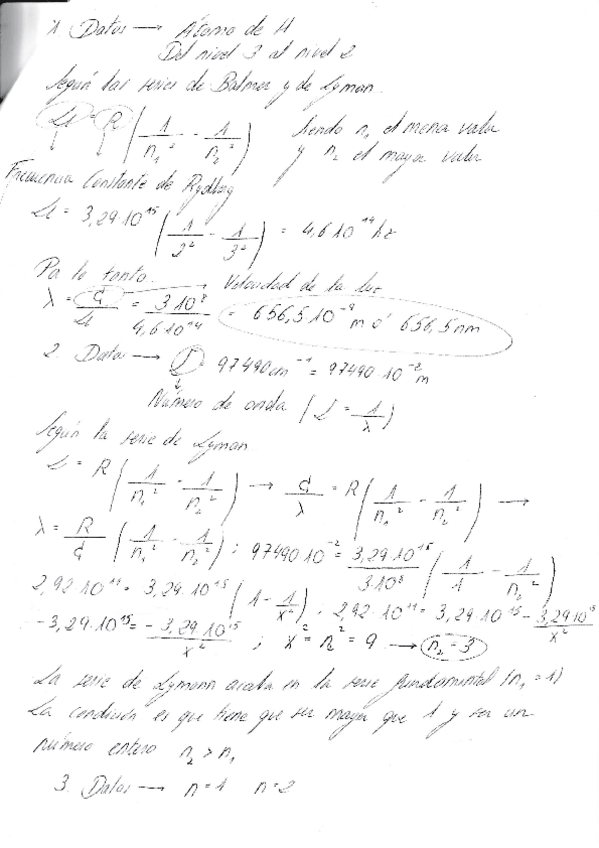 1. Datos → Átomo de H
Del nivel 3 al nivel 2
Según las series de Balmer y de Lyman.
μ = R (1/n₁² - 1/n₂²) Siendo n₁ el menor valor
y n₂ el mayor valor
Frecuencia Constante de Rydberg
μ = 3,29·10¹⁵ (1/2² - 1/3²) = 4,6·10¹⁴ hz
Por lo tanto. Velocidad de la luz
λ = c/μ = 3·10⁸/4,6·10¹⁴ = 656,5·10⁻⁹ m ó 656,5 nm
2. Datos → 97490 cm⁻¹ = 97490·10⁻² m
Número de onda ( = 1/λ)
Según la serie de Lyman
μ = R (1/n₁² - 1/n₂²) → c/λ = R (1/n₁² - 1/n₂²) →
λ = R/c (1/n₁² - 1/n₂²) ; 97490·10⁻² = 3,29·10¹⁵/3·10⁸ (1/1 - 1/n₂²)
2,92·10¹¹ = 3,29·10¹⁵ (1 - 1/x²) ; 2,92·10¹¹ = 3,29·10¹⁵ - 3,29·10¹⁵/x²
-3,29·10¹⁵ = - 3,29·10¹⁵/x² ; x² = n₂² = 9 → n₂ = 3
La serie de Lymann acaba en la serie fundamental (n₁ = 1)
La condición es que tiene que ser mayor que 1 y ser un
número entero n₂ > n₁
3. Datos → n = 1 n = 2